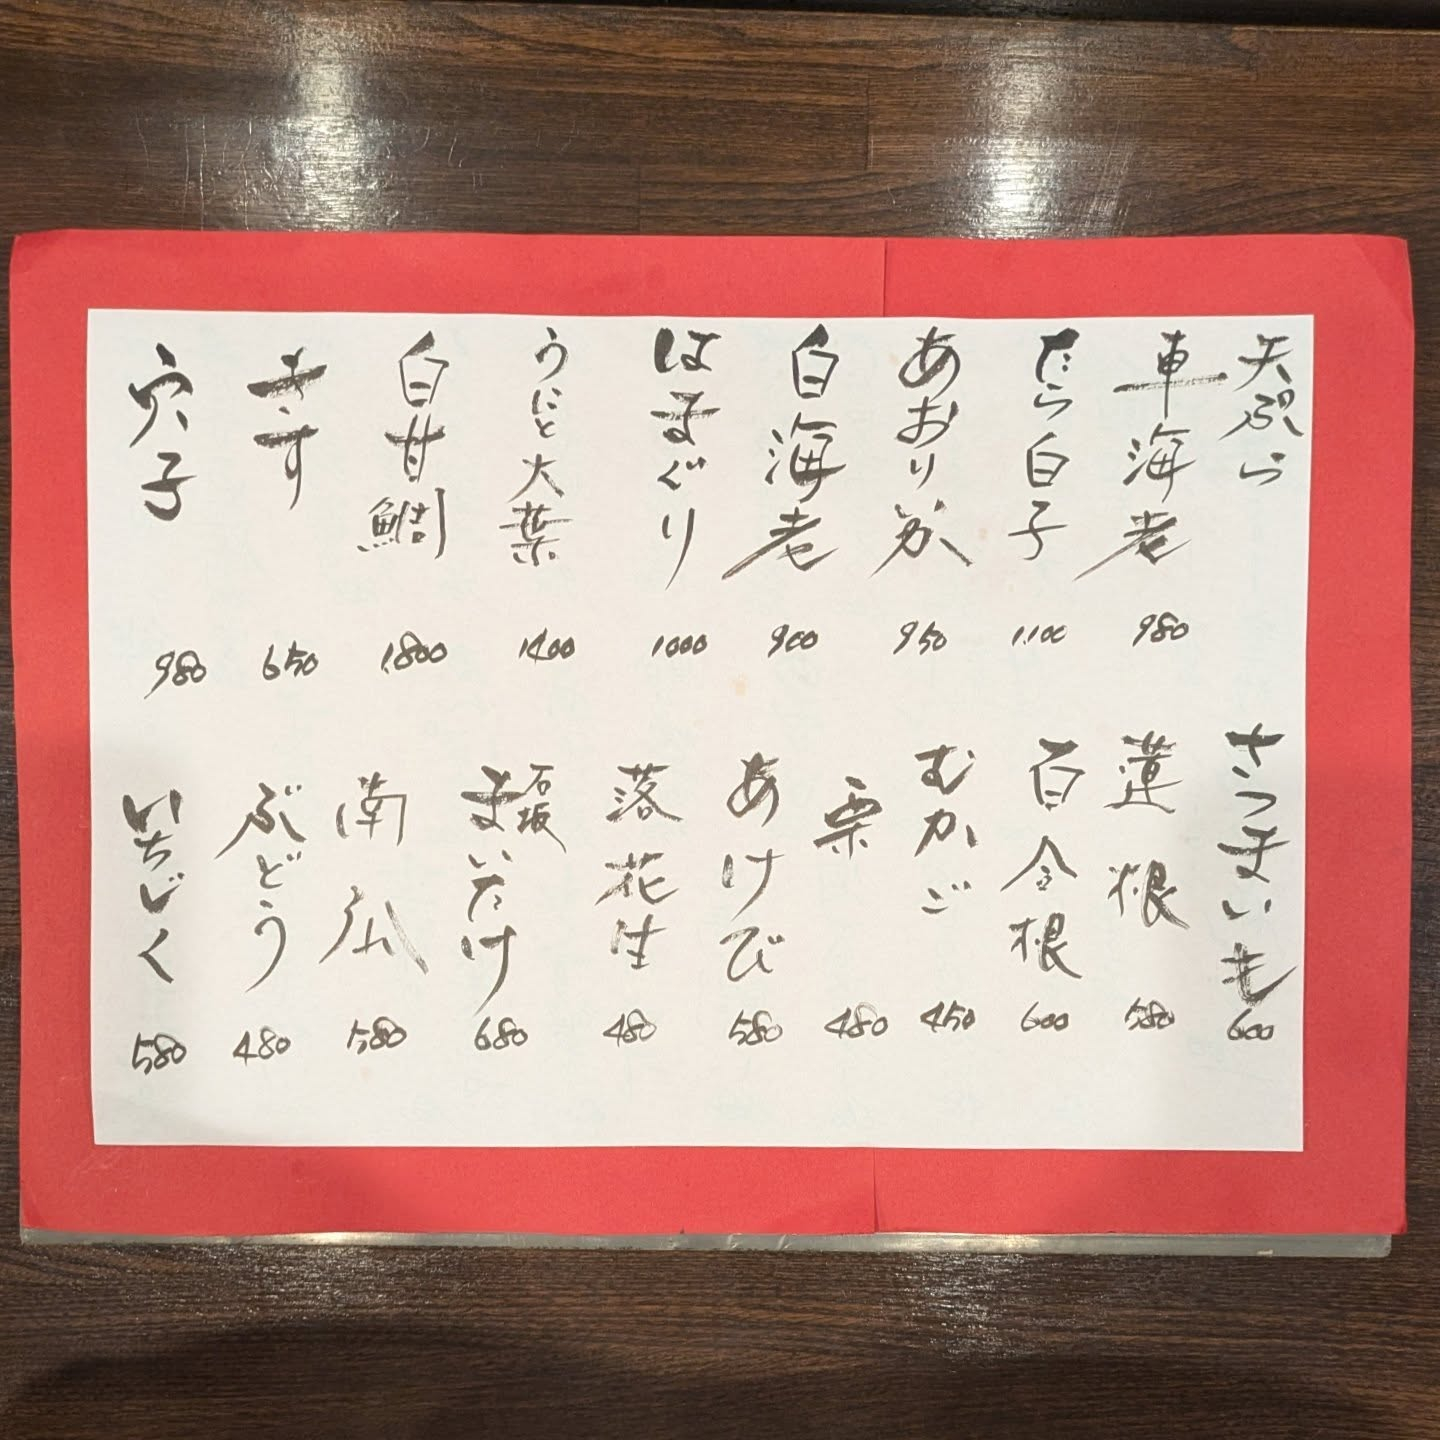 天ぷら
車海老 980
たら白子 1.100
あおりいか 950
白海老 900
はまぐり 1.000
うにと大葉 1400
白甘鯛 1.800
きす 650
穴子 980
さつまいも 600
蓮根 580
百合根 600
むかご 450
栗 480
あけび 580
落花生 480
石坂まいたけ 680
南瓜 580
ぶどう 480
いちじく 580